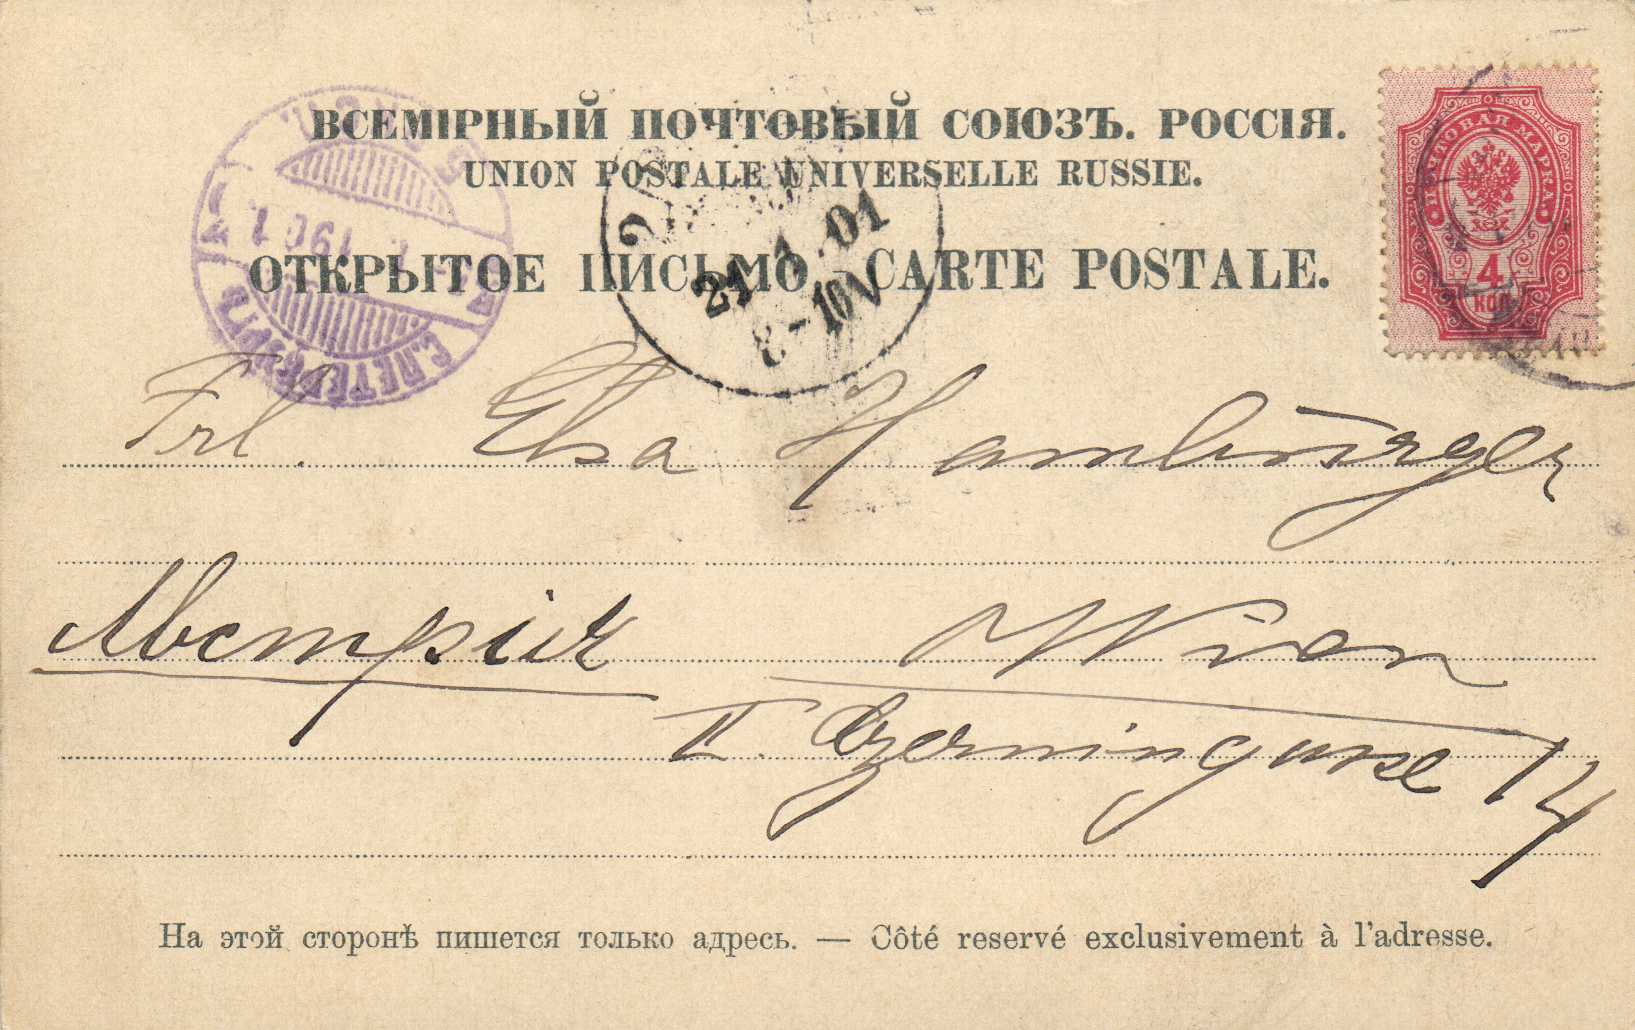 ВСЕМІРНЫЙ ПОЧТОВЫЙ СОЮЗЪ. РОССІЯ.
UNION POSTALE UNIVERSELLE RUSSIE.
ОТКРЫТОЕ ПИСЬМО CARTE POSTALE.
ПОЧТОВАЯ МАРКА
4
КОП.
С.ПЕТЕРБУРГЪ
1901
21 1.01
8-10V
Frl. Elsa Hamburger
Австрія Wien
II. Czerningasse 14
На этой сторонѣ пишется только адресъ. — Côté reservé exclusivement à l'adresse.